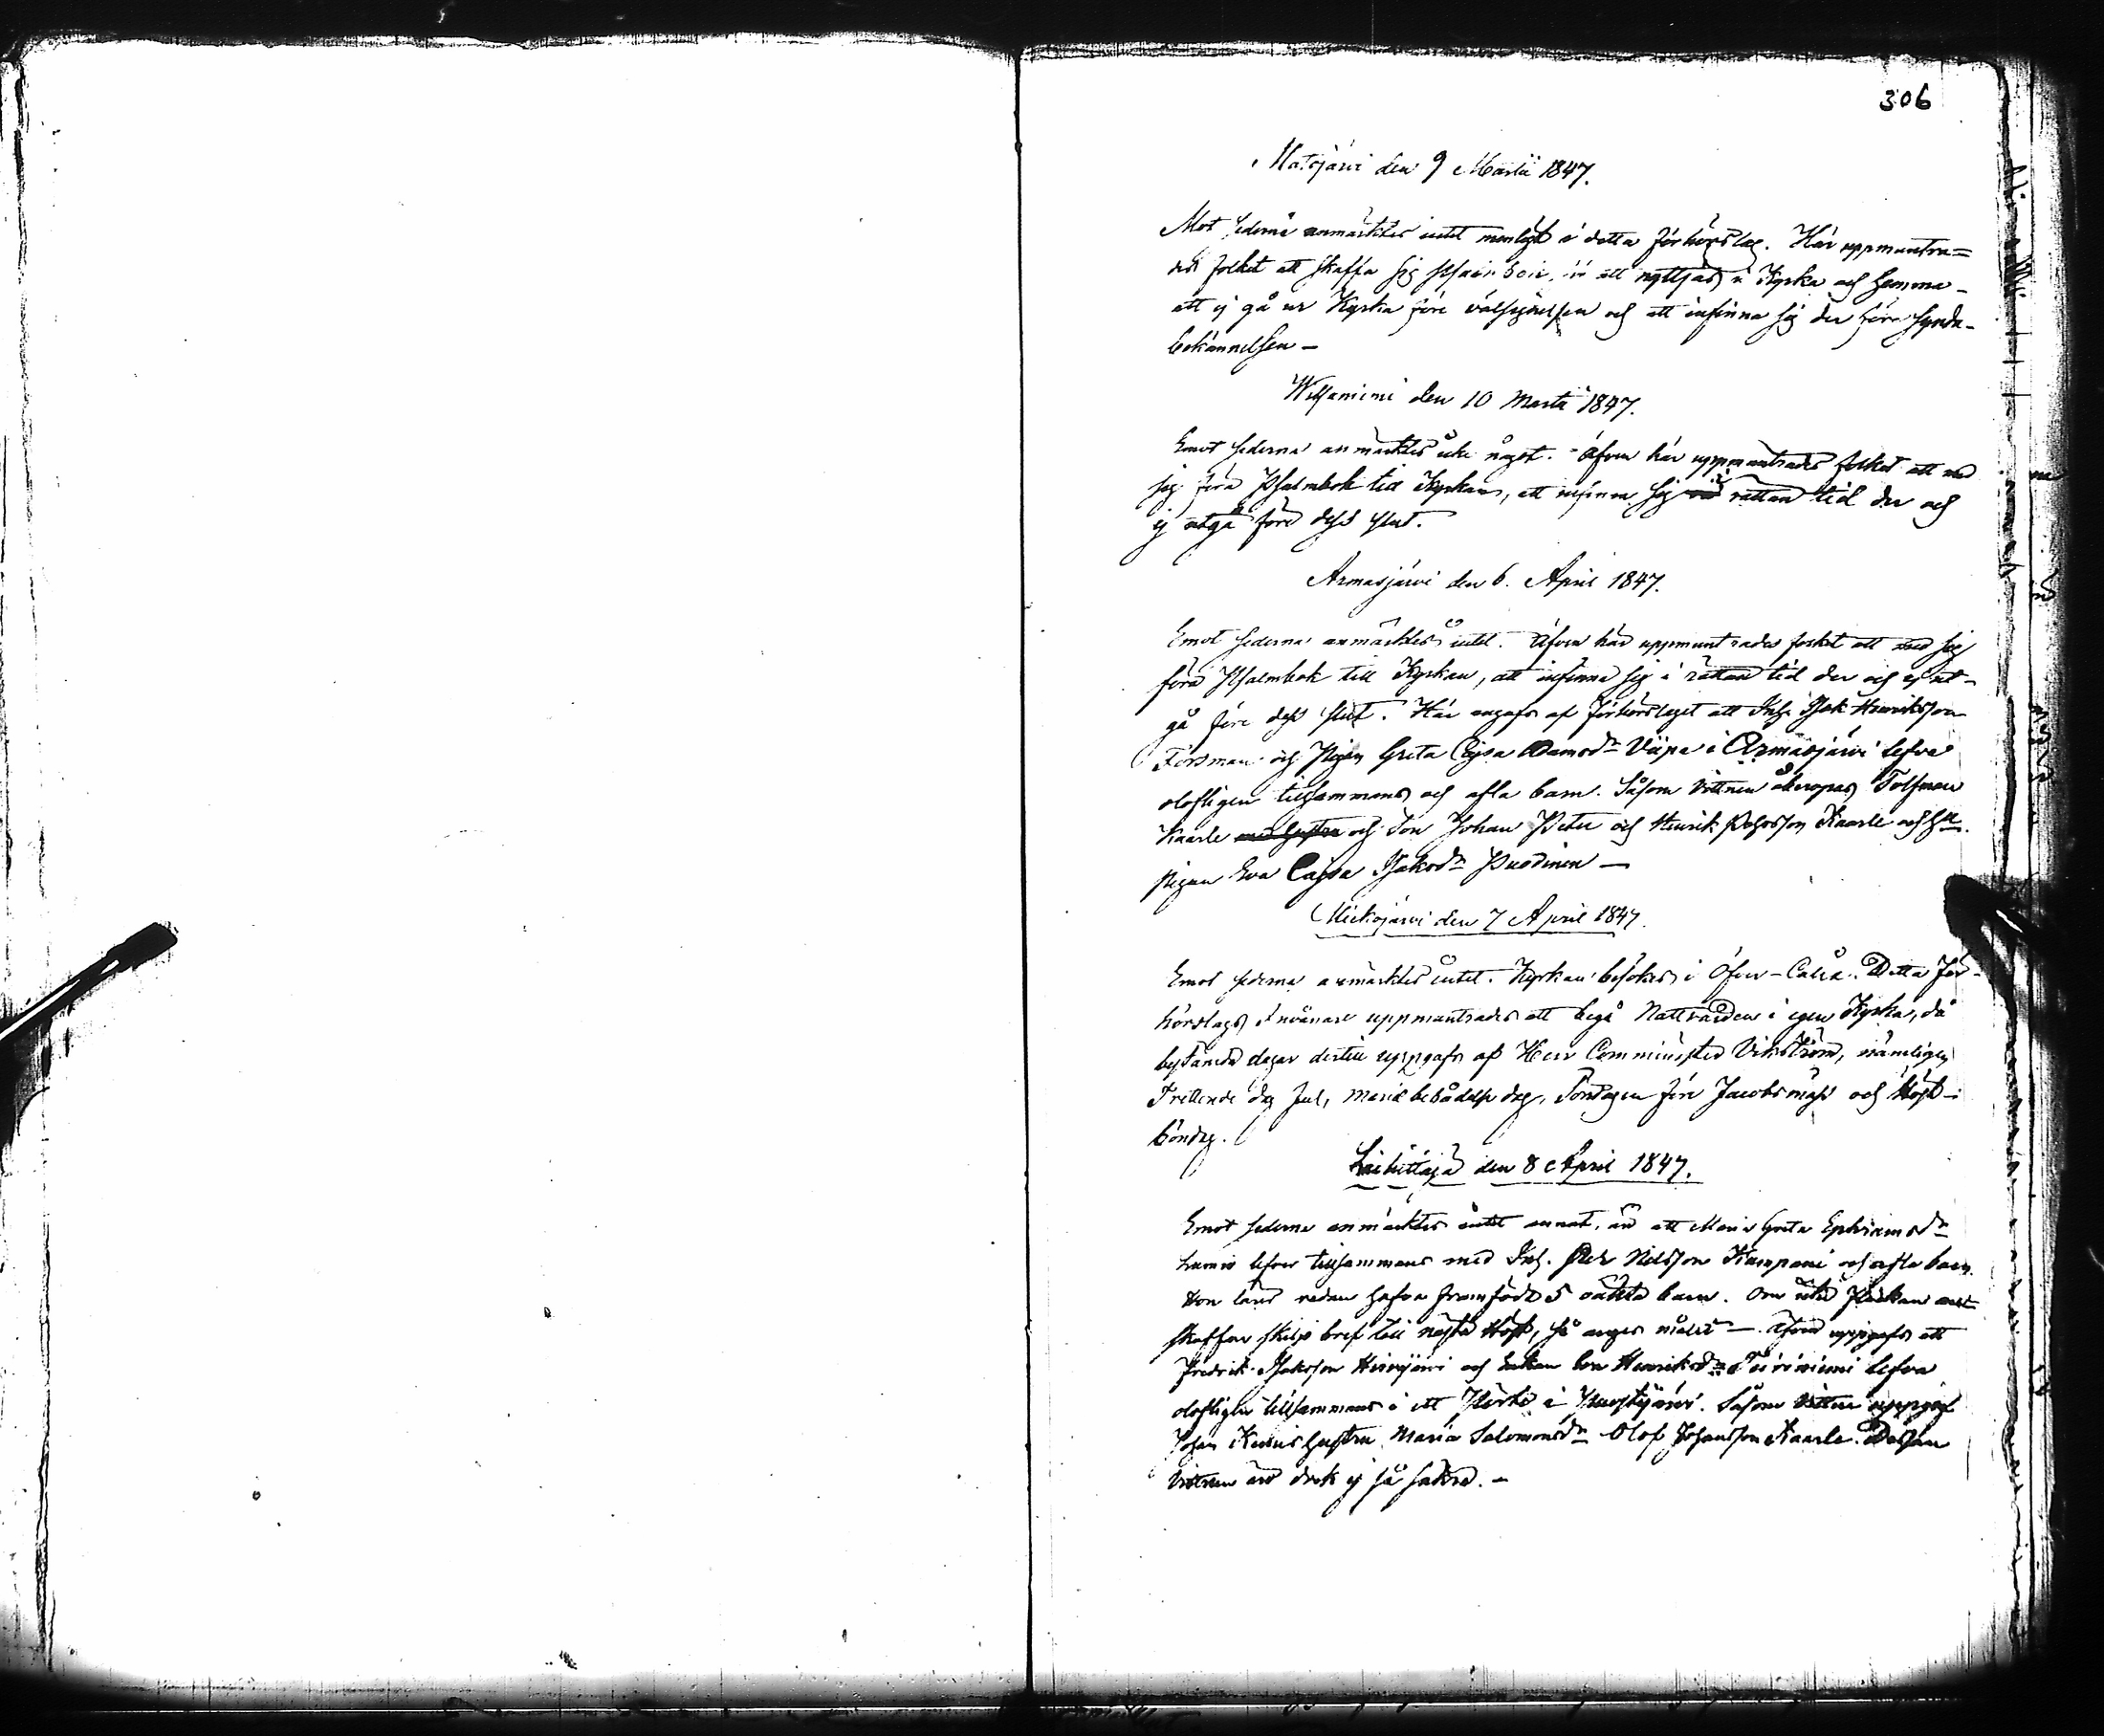 306
Matojärvi den 9 Martii 1847.
Mot sederna anmärktes intet menligt i detta förhörslag. Här uppmuntra=
des folket att skaffa sig att nyttjas i Kyrka och hemma -
att ej gå ur Kyrka före välsignelsen och att infinna sig der före synda-
bekännelsen -
den 10 Martii 1847.
Emot sederna anmärktes icke något. Äfven här uppmuntrades folket att med
sig föra Psalmbok till Kyrkan, att infinna sig rättan tid der och
ej utgå före dess slut.
Armasjärvi den 6. April 1847.
Emot sederna anmärktes intet. Äfven här uppmuntrades folket att med sig
föra Psalmbok till Kyrkan, att infinna sig i rättan tid der och ej ut-
gå före dess slut. Här angafs af förhörslaget att Inh. Isak Henriksson
Forsman och Pigan Greta Cajsa Adamsdr Viipa i Armasjärvi lefva
olofligen tillsammans och afla barn. Såsom vittnen åberopas Tolfman
Kaarle med hustru och Son Johan Peter och Henrik Kaarle och
pigan Eva Cajsa Isaksdr Puodinen -
Mickojärvi den 7 April 1847.
Emot sederna anmärktes intet. Kyrkan besökes i Öfver-Calix. Detta För-
hörslags invånare uppmuntrades att begå Nattvarden i egen Kyrka, då
bestämda dagar dertill uppgafs af Herr Comminister Vikström, nämligen
Trettende dag Jul, Mariæ bebådelse dag, Söndagen före Jacobsmäss och Höst-
böndag.
den 8 April 1847.
Emot sederna anmärktes intet annat, än att Maria Greta Ephraimsdr
lefver tillsammans med Inh. Nilsson Kamponi och afla barn.
Hon lärer redan hafva framfödt 5 oäkta barn. Om icke flickan
skaffar skiljobref till nästa Höst, så anges målet - Äfven uppgafs att
Fredrik Isaksson Hirvijärvi och Enkan Eva Henriksdr lefva
olofligen tillsammans i ett Pörte i Puostijärvi. Såsom vittnen uppgaf
Johan hustru Maria Salomonsdr Olof Johansson Kaarle. Dessan
vittnen äro dock ej så säkra. -